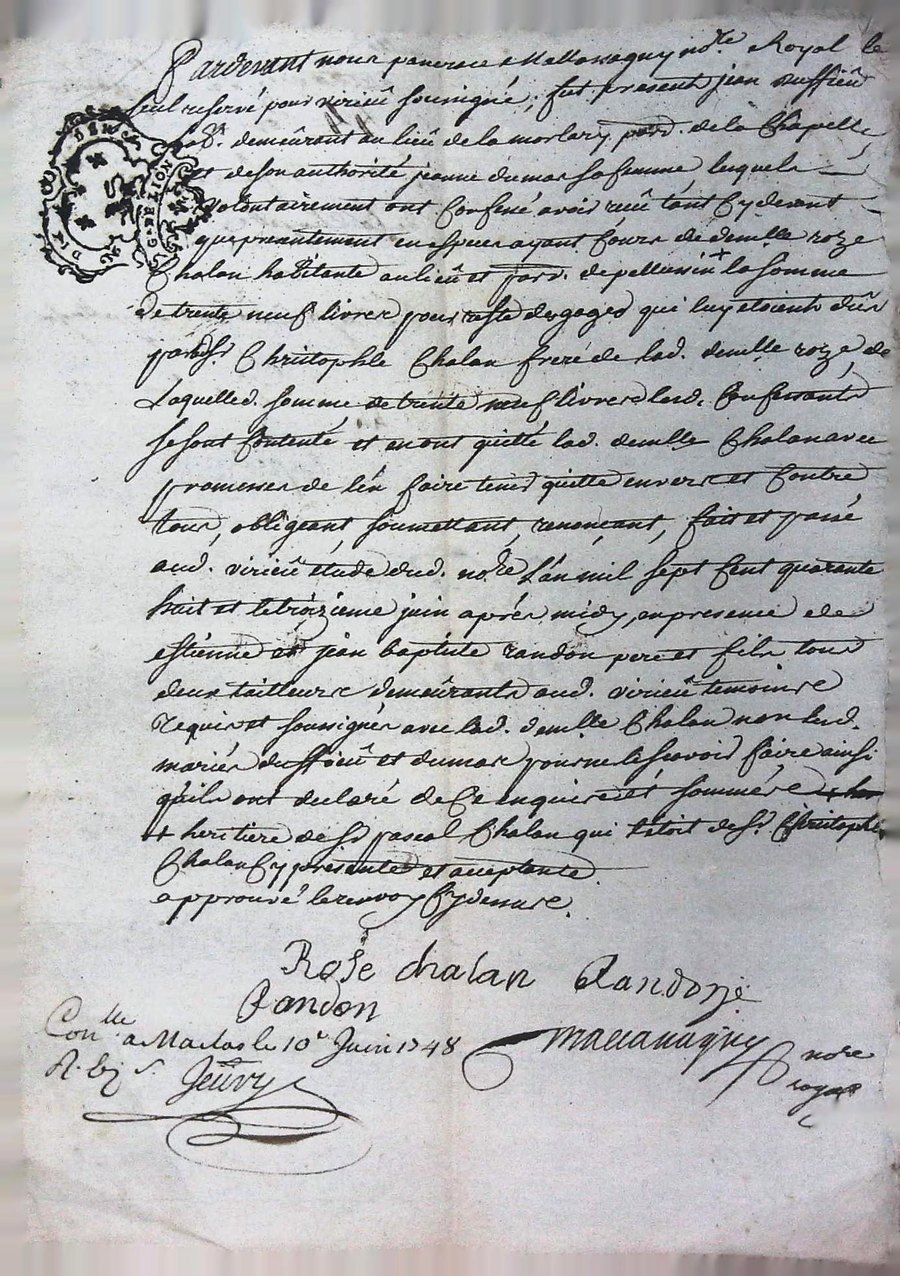 Pardevant nous pancrace Maccanaguy no.re Royal le
seul reservé pour virieü soussigné, fut present jean duffieu
demeürant au lieü de la morlary, parr. de la Chapelle,
et de son authorité jeanne dumas sa femme lesquels
volontairement ont Confessé avoir receü tant Cy devant
que presentement en especes ayant Cours de demlle roze
Chalan habitante au lieü et parr. de pellussin + la somme
de trente neuf livres pour reste des gages qui luy etoient düs
par Christophle Chalan frere de lad. demlle roze, de
Laquelled. somme de trente neuf livres lesd. Confessants
se sont Contenté et en ont quitté lad. demlle Chalan avec
promesses de l'en faire tenir quitte envers et Contre
tous, obligeant, soumettant, renonçant, fait et passé
aud. virieü étude dud. no.re L'an mil sept Cent quarante
huit et le troizieme juin aprés midy, en presence de
estienne et jean baptiste randon pere et fils tous
deux tailleurs demeürants aud. virieü temoins
requis et soussignés avec lad. demlle Chalan non lesd.
mariés duffieü et dumas pour ne le sçavoir faire ainsi
qu'ils ont declaré de Ce enquis et sommés
+ heritiere de Sr. pascal Chalan qui l'étoit de Sr. Christophle
Chalan Cy presente et acceptante
approuvé le renvoy Cy dessus.
Rose chalan Randon
Randon
Con.lle a Maclas le 10e Juin 1748
Maccanaguy no.re
royal
R. Jeüvy